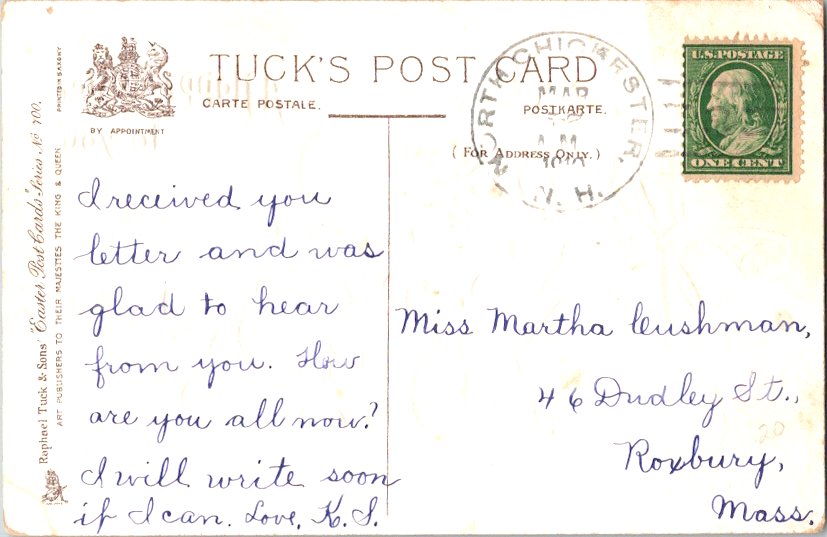 TUCK'S POST CARD
CARTE POSTALE.
POSTKARTE.
(FOR ADDRESS ONLY.)
BY APPOINTMENT
PRINTED IN SAXONY
Raphael Tuck & Sons' "Easter" Post Cards Series No 700.
ART PUBLISHERS TO THEIR MAJESTIES THE KING & QUEEN
NORTH CHICHESTER,
MAR
A.M.
N. H.
U.S. POSTAGE
ONE CENT
I received you
letter and was
glad to hear
from you. How
are you all now?
I will write soon
if I can. Love, K. S.
Miss Martha Cushman,
46 Dudley St.,
Roxbury,
Mass.
20